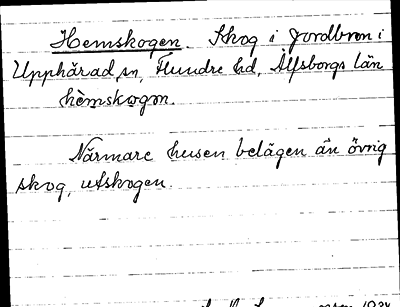 Hemskogen. Skog i Jordbron i
Upphärad sn, Flundre hd, Älfsborgs län
hèmskogɷn.
Närmare husen belägen än övrig
skog, utskogen.